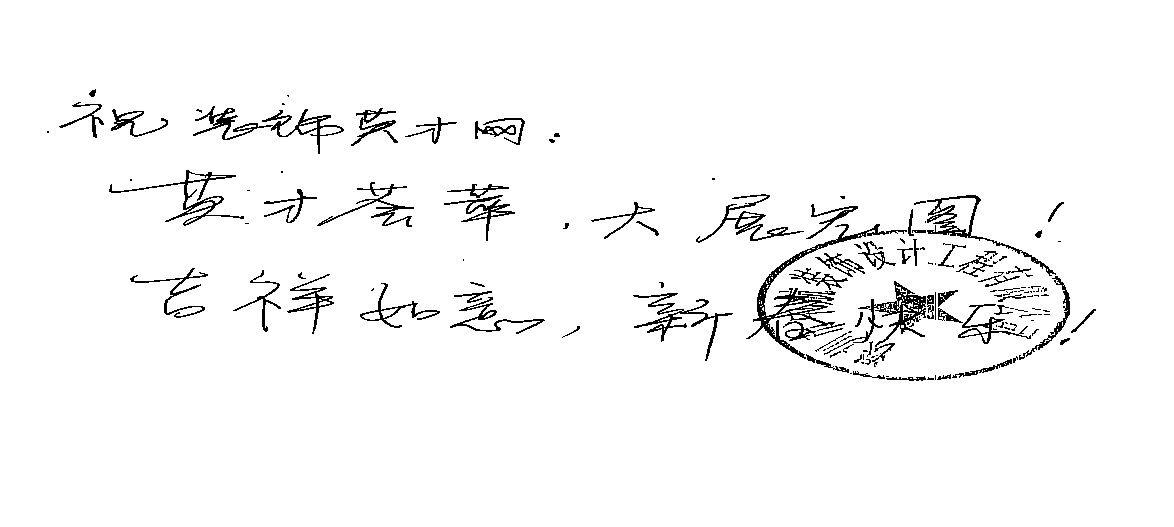 祝装饰英才网:
英才荟萃,大展宏图!
吉祥如意,新春快乐!
装饰设计工程有限公司